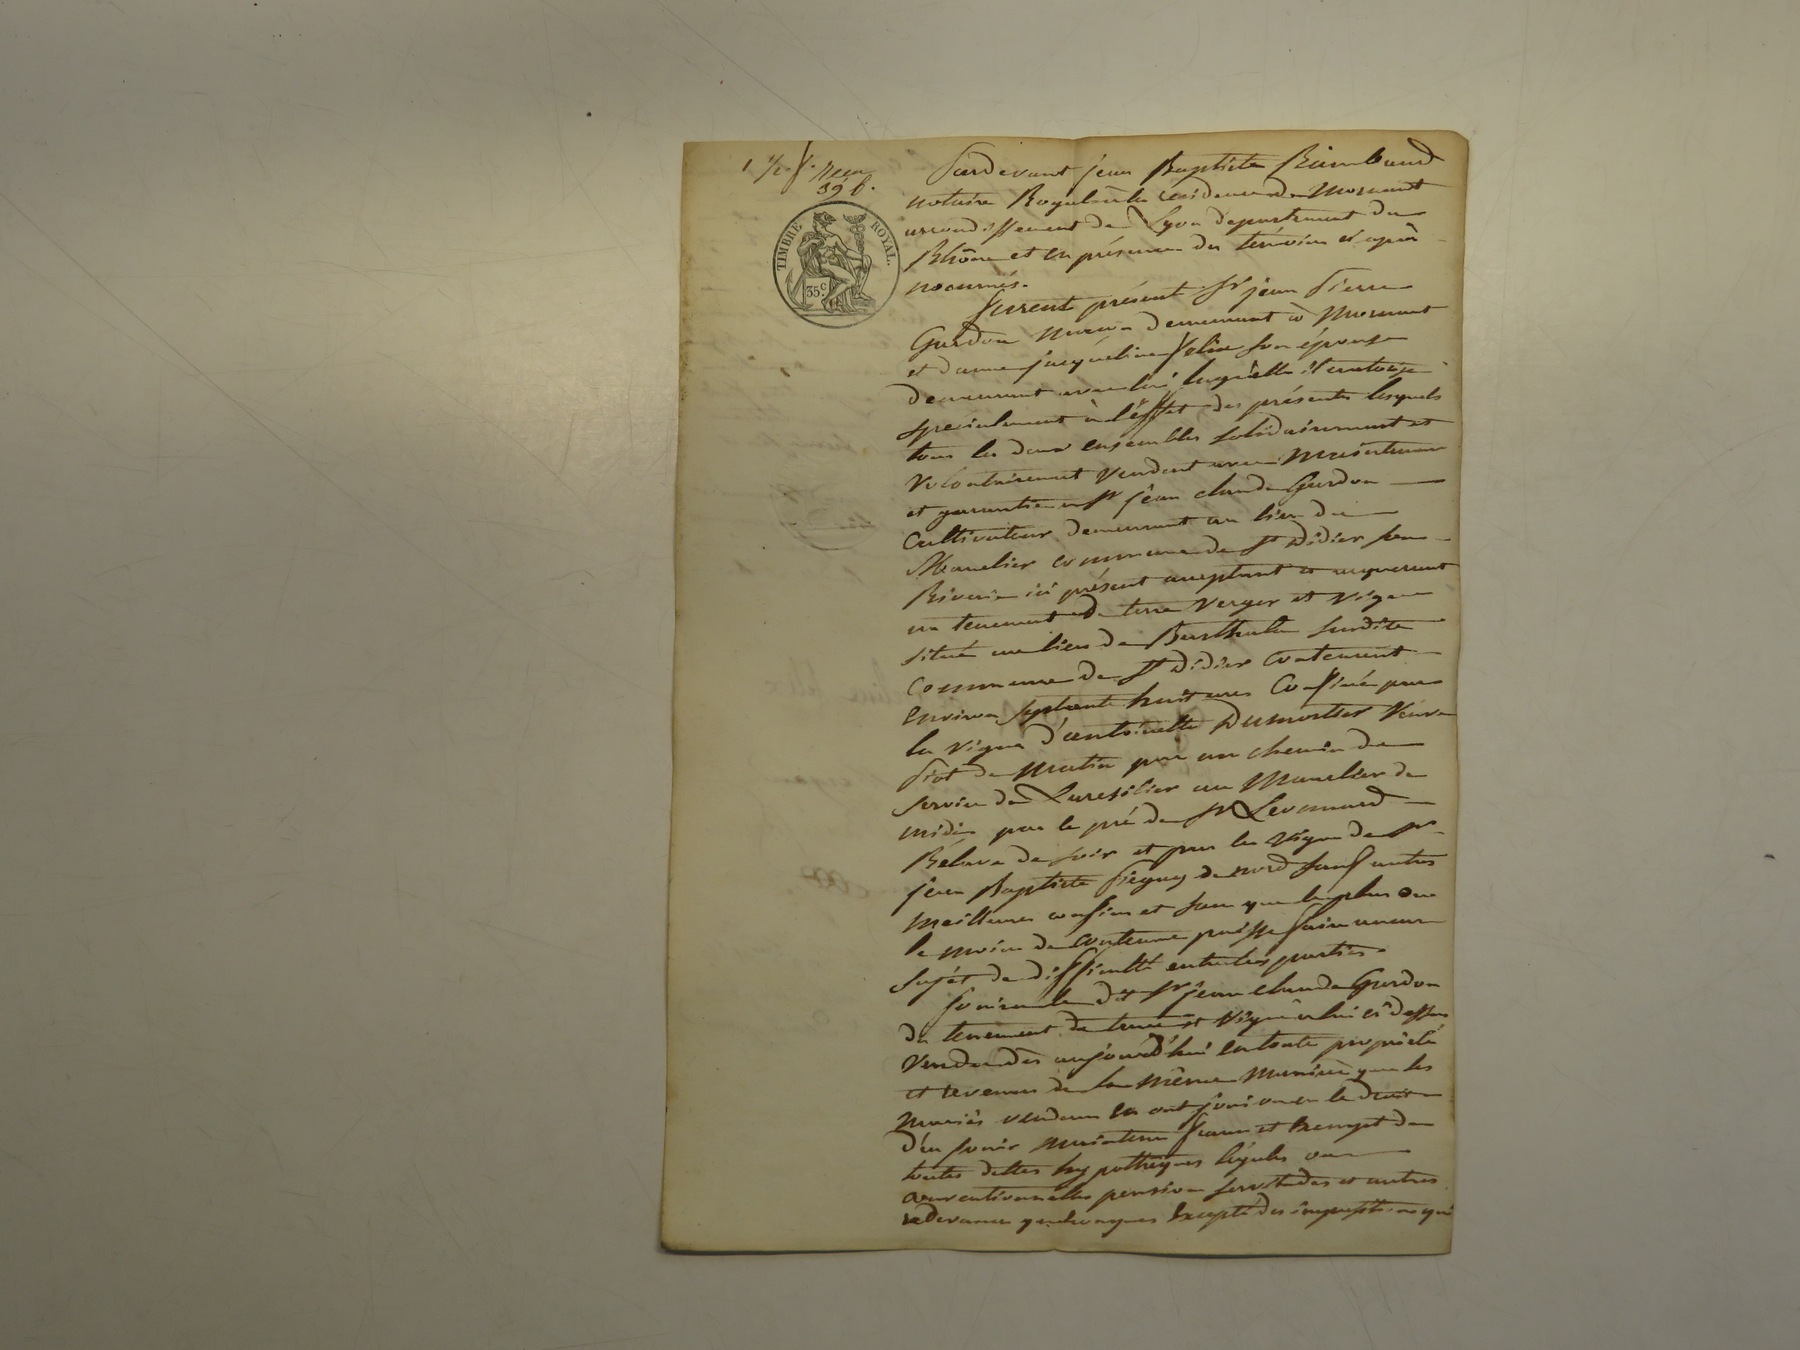 1 1/2 f.
39 f.
TIMBRE ROYAL.
35 C.
Pardevant jean Baptiste Rimbaud
notaire Royal à la résidence de Mornant
arrondissement de Lyon departement du
Rhône et en présence des témoins ci après
nommés.
furent présent Sr jean Pierre
Gurdon demeurant à Mornant
et dame jacqueline félix son épouse
demeurant avec lui laquelle il autorise
specialement à l'éffet des présentes lesquels
tous les deux ensembles solidairement et
volontairement vendent avec Maintenue
et garantie a Sr jean claude Gurdon
cultivateur demeurant au lieu du
commune de St Didier sous
Riverie ici présent acceptant et acquerant
un tenement de terre verger et vigne
situé au lieu de Berthala susdite
commune de St Didier contenant
environ septante huit ares Confiné par
la vigne d'antoinette Dumortier veuve
Piot de matin par un chemin de
service de au de
midi par le pré de Sr Leonnard
de soir et par la vigne de Sr
jean Baptiste de nord sauf autres
meilleures confins et sans que le plus ou
le moins de contenue puisse faire aucun
sujet de difficulté entre les parties.
jouira le dit Sr jean claude Gurdon
du tenement de terre et vigne a lui ci dessus
vendu dès aujourd'hui en toute propriété
et revenus de la même manière que les
mariés vendeurs en ont joui ou eu le droit
d'en jouir maintenu franc et exempt de
toutes dettes hypothèques légales ou
conventionnelles pension servitudes et autres
redevances quelconques Excepté des impositions qui